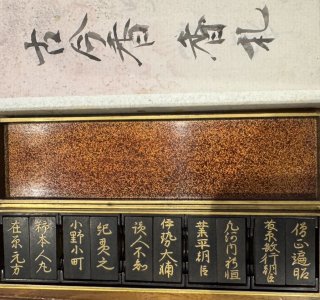 古今香 香札
僧正遍昭
藤原敏行朝臣
凡河内躬恒
業平朝臣
伊勢大輔
読人不知
紀貫之
小野小町
柿本人丸
在原元方